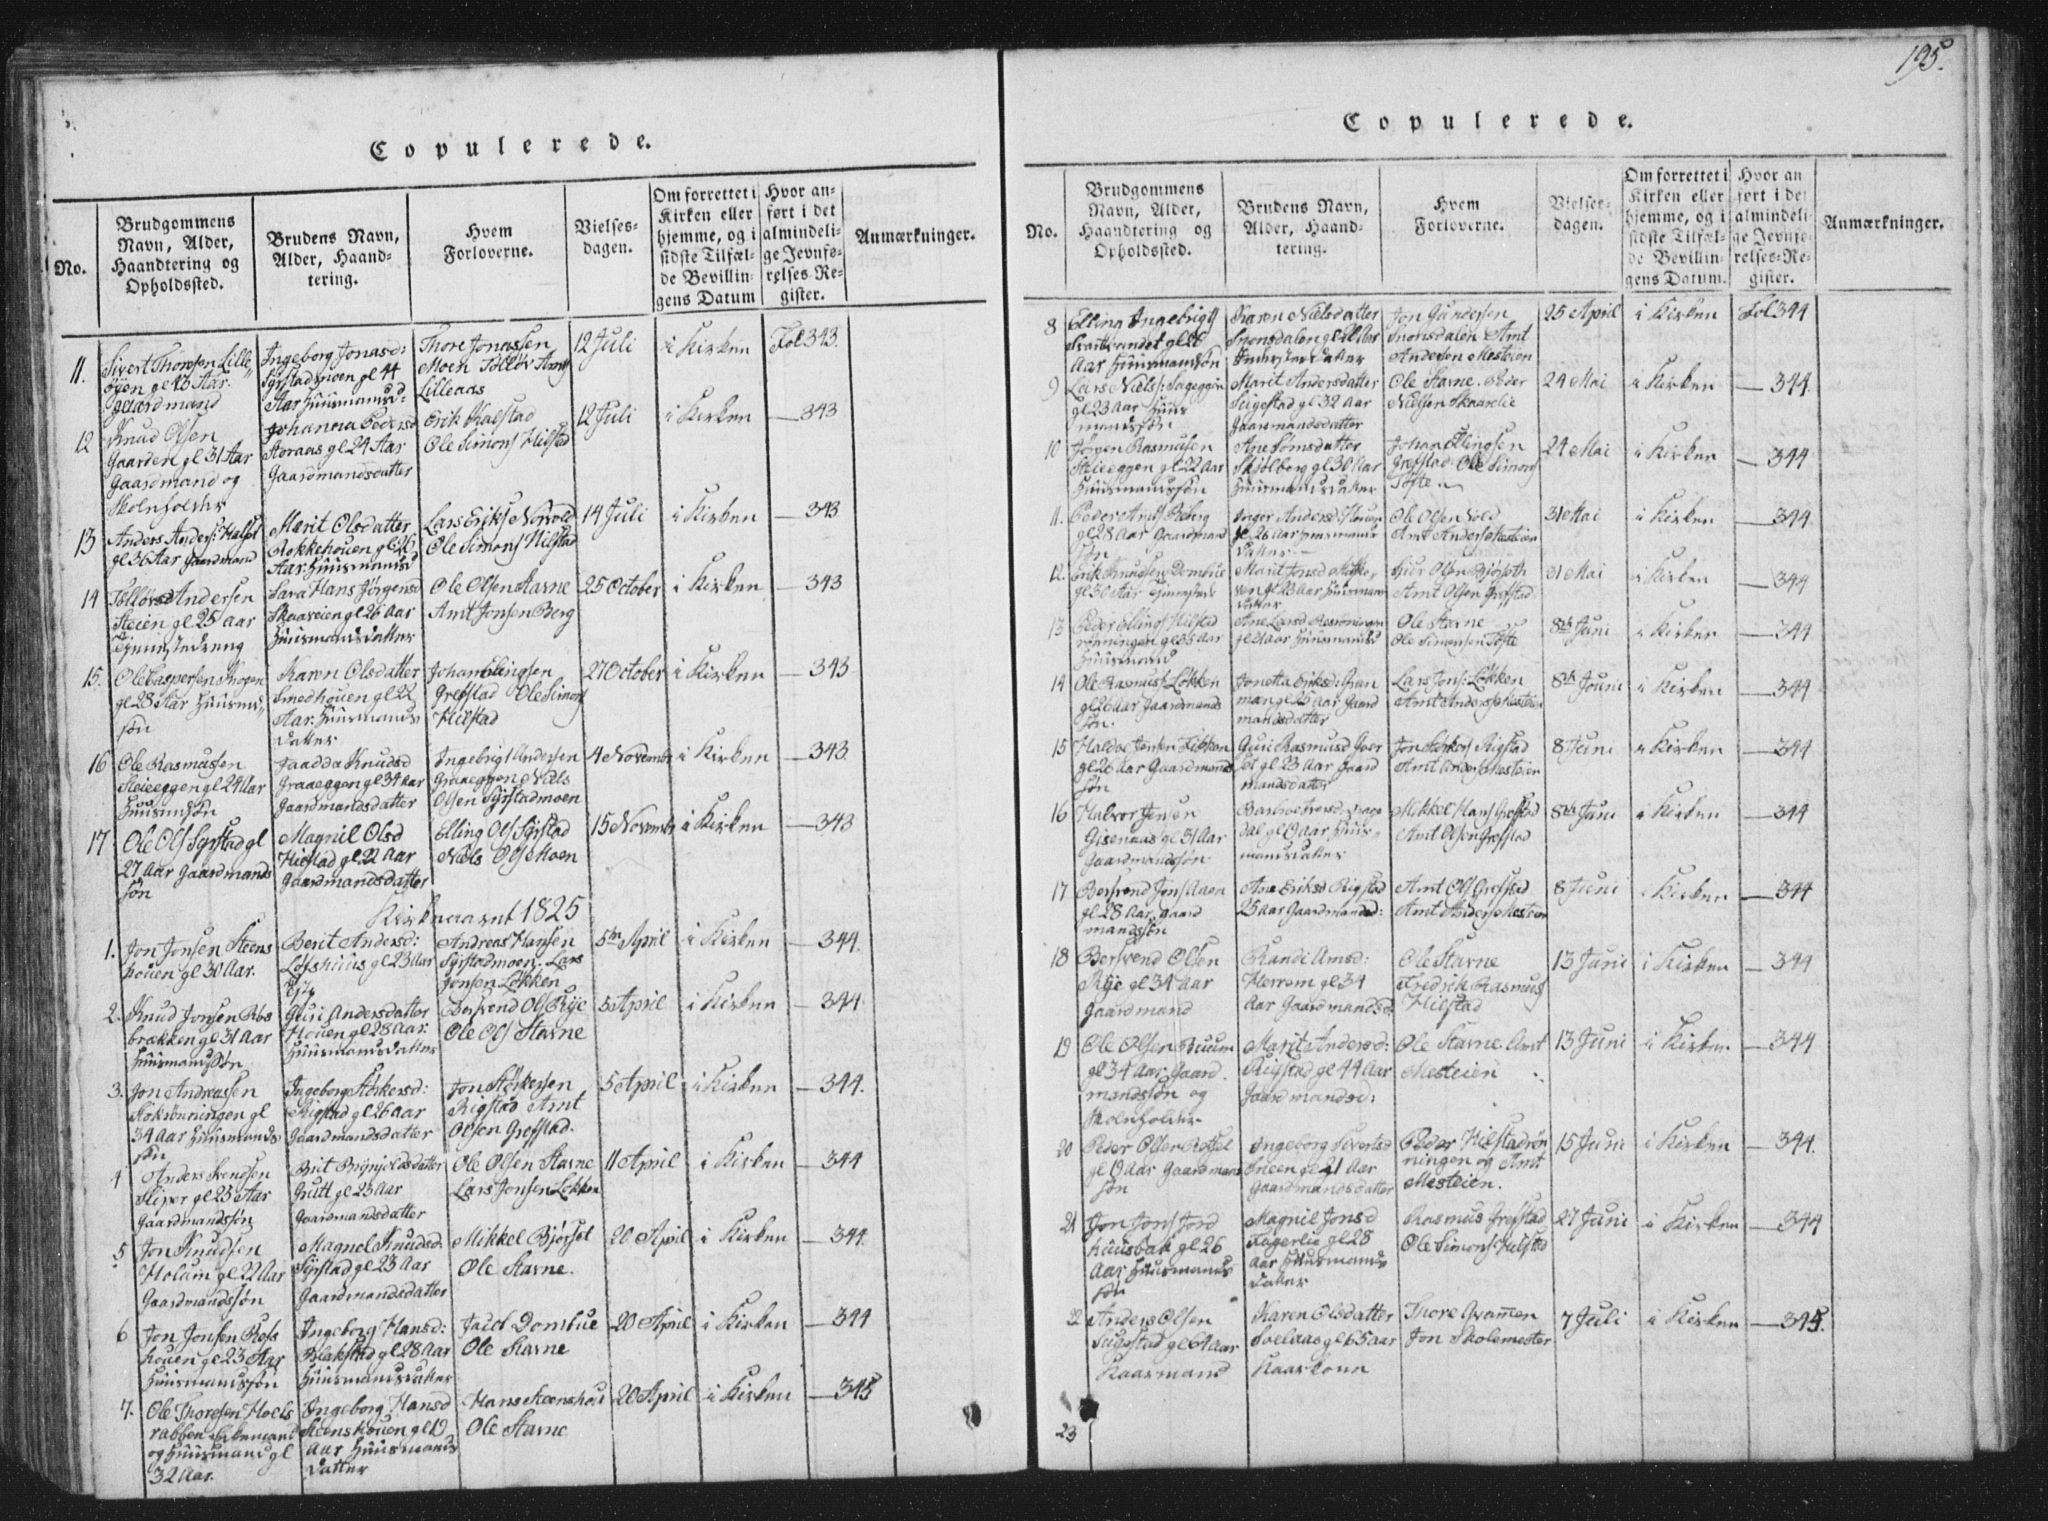 195.
Copulerede.
No.
Brudgommens
Navn, Alder,
Haandtering og
Opholdssted.
Brudens Navn,
Alder, Haand-
tering.
Hvem
Forloverne.
Vielses-
dagen.
Om forrettet i
Kirken eller
hjemme, og i
sidste Tilfæl-
de Bevillin-
gens Datum
Hvor an-
ført i det
almindeli-
ge Jevnfø-
relses-Re-
gister.
Anmærkninger.
11. Sivert Thoresen Lille
øyen gl 43 Aar
gaardmand
Ingeborg Jonasd:
Syrstadmoen gl 44
Aar Huusmandsd:
Thore Jonassen
Moen Tolløv Amt
Lilleaas
12 Juli
i Kirken
Fol 343.
12 Knud Olsen
Gaarden gl 31 Aar
Gaardmand og
Skoleholder
Johanna Pedersd
Storaas gl 24 Aar
Gaardmandsdatter
Erik Kalstad
Ole Simons Hilstad
12 Juli
i Kirken
— 343
13 Anders Anders:
gl 36 Aar Gaardmand
Marit Olsdatter
Rokkehouen gl 26
Aar Huusmandsd
Lars Eriks
Ole Simons Hilstad
14 Juli
i Kirken
— 343
14 Tolløv Andersen
Steien gl 25 aar
Tjenestedreng
Sara Hans Jørgensd
Skaaveien gl 26 aar
Huusmandsdatter
Ole Olsen Stavne
Amt Jonsen Berg
25 October
i Kirken
— 343
15. Ole Caspersen
gl 28 Aar Huusm:
søn
Karen Olsdatter
Smedhouen gl 22
Aar. Huusmands
datter
Johan Elingsen
Grefstad Ole Simons
Hilstad
27 October
i Kirken
— 343
16 Ole Rasmussen
Steieeggen gl 24 Aar
Huusmsøn
Jaadda Knudsd
Graaeggen gl 34 aar
Gaardmandsdatter
Ingebrigt Andersen
Graaeggen Niels
Olsen Syrstadmoen
4 November
i Kirken
— 343.
17 Ole Ols Syrstad gl
27 Aar Gaardmands
søn
Magnil Olsd
Hilstad gl 22 Aar
Gaardmandsdatter
Elling Ols Syrstad
Niels Ols Moen
15 November
i Kirken
— 343
Kirkeaaret 1825
1. Jon Jonsen Steens
houen gl 30 Aar.
Berit Andersd:
Løfshuus gl 23 Aar
Andreas Hansen
Syrstadmoen. Lars
Jonsen Løkken
5te April
i Kirken
— 344.
2. Knud Jonsen
brækken gl 31 Aar
Huusmandssøn
Guri Andersdatter
Houen gl 28 Aar:
Huusmandsdatter
Bersvend Ols Rye
Ole Ols Stavne
5 April
i Kirken
— 344.
3. Jon Andreassen
Stokrønningen gl
34 Aar Huusmands
søn
Ingeborg Størkersd:
Rigstad gl 26 aar
Gaardmandsdatter
Jon Størkersen
Rigstad Amt
Olsen Grefstad.
5 April
i Kirken
— 344.
4 Anders Svendsen
Sliper gl 23 Aar
Gaardmandssøn
Brit Brynjolsdatter
Grutt gl 23 Aar
Gaardmandsdatter
Ole Olsen Stavne
Lars Jonsen Løkken
11 April
i Kirken
— 344
5 Jon Knudsen
Holum gl 22 Aar
Gaardmandssøn
Magnel Knudsd:
Syrstad gl 23 Aar
Gaardmandsdatter
Mikkel Bjørset
Ole Stavne.
20 April
i Kirken
— 344.
6 Jon Jonsen
houen gl 23 Aar
Huusmandssøn
Ingeborg Hansd:
Blakstad gl 28 Aar
Huusmandsdatter
Dombue
Ole Stavne
20 April
i Kirken
— 344
7. Ole Thoresen Hoels
rabben Enkemand
og Huusmand gl
32 Aar.
Ingeborg Hansd
Steenshouen gl 19
aar Huusmands
datter
Hans Steenshou
Ole Stavne
20 April
i Kirken
— 345
Copulerede.
No.
Brudgommens
Navn, Alder,
Haandtering og
Opholdssted.
Brudens Navn,
Alder, Haand-
tering.
Hvem
Forloverne.
Vielses-
dagen.
Om forrettet i
Kirken eller
hjemme, og i
sidste Tilfæl-
de Bevillin-
gens Datum.
Hvor an
ført i de
almindeli-
ge Jevnfø-
relses-Re-
gister.
Anmærkninger.
8 Elling Ingebrigt
Aar Huusmandsøn
Karen Nielsdatter
Jon Gundersen
Snonsdalen Amt
Andersen Mesteien
25 April
i Kirken
Fol 344
9 Lars Niels:
gl 23 Aar Huus
mandssøn
Marit Andersdatter
gl 32 Aar
Gaarmandsdatter
Ole Stavne. Peder
Nielsen Skaarlie
24 Mai
i Kirken
— 344.
10 Jørgen Rasmusen
Steieeggen gl 22 Aar
Huusmandssøn
Skjølberg gl 30 Aar
Huusmandsdatter
Johan Elingsen
Grefstad. Ole Simons
Tofte
24 Mai
i Kirken
— 344
11. Peder
gl 28 Aar Gaardmand
søn
Inger Andersd:
gl 26 aar
datter
Ole Olsen Vold
Amt Anders Mesteien
31 Mai
i Kirken
— 344.
12. Erik Knudsen Dombue
gl 30 Aar
Marit Jonsd
gl 23 Aar Huusman
datter
Siur Olsen
Amt Olsen Grefstad
31 Mai
i Kirken
— 344
13 Peder Ellings Hilstad
rønningen gl 35 Aar
Huusmand
Ane Larsd
Huusmandsd
Ole Stavne
Ole Simonsen Tofte
8de Juni
i Kirken
— 344
14 Ole Rasmus Løkken
gl 26 Aar Gaardmands
søn.
Jonetta Eriksd: Gran
man gl 26 aar Gaard
mandsdatter
Lars Jons: Løkken
Amt Anders Mesteien
8de Jouni
i Kirken
— 344
15 Haldoe Jensen
gl 26 Aar Gaardmands
søn
Guri Rasmusd
gl 23 Aar Gaard
mandsdatter
Jon Størkers Rigstad
Amt Anders Mesteien
8 Juni
i Kirken
— 344
16 Halvor Jensen
Gisenaas gl 31 Aar
Gaardmandssøn
dal gl 19 aar Huus-
mandsdatter
Mikkel Hans Grefstad
Amt Olsen Grefstad
8de Juni
i Kirken
— 344
17 Bersvend Jons Aaen
gl 28 Aar gaard
mandssøn
Ane Eriksd Rigstad
25 aar Gaardmandsd:
Amt Ols Grefstad
Amt Anders Mesteien
8 Juni
i Kirken
— 344
18 Bersvend Olsen
Rye gl 34 Aar
Gaardmand
Randi Amsd:
Herrem gl 34
Aar Gaardmandsd.
Ole Stavne
Fredrik Rasmus
Hilstad
13 Juni
i Kirken
— 344
19 Ole Olsen Buum
gl 34 Aar Gaard
mandssøn og
Skoleholder
Marit Andersd:
Rigstad gl 44 Aar
Gaardmandsd:
Ole Stavne Amt
Mesteien
13 Juni
i Kirken
— 344
20 Peder Olsen
gl 19 Aar Gaardmans
søn
Ingeborg Sivertsd
gl 21 Aar
Gaardmandsdatter
Peder Hilstadrøn
ningen og Amt
Mesteien.
15 Juni
i Kirken
— 344.
21 Jon Jons Jord
huusbak gl 26
Aar Huusmands
søn
Magnil Jonsd
Fagerlie gl 28
Aar Huusmands
datter
Rasmus Grefstad
Ole Simons: Hilstad
27 Juni
i Kirken
— 344
22 Anders Olsen
gl 64 aar
Kaarmand
Karen Olsdatter
Svelaas gl 65 aar
Kaarkone
Thore
Jon Skolemester
7 Juli
i Kirken
— 345.
23